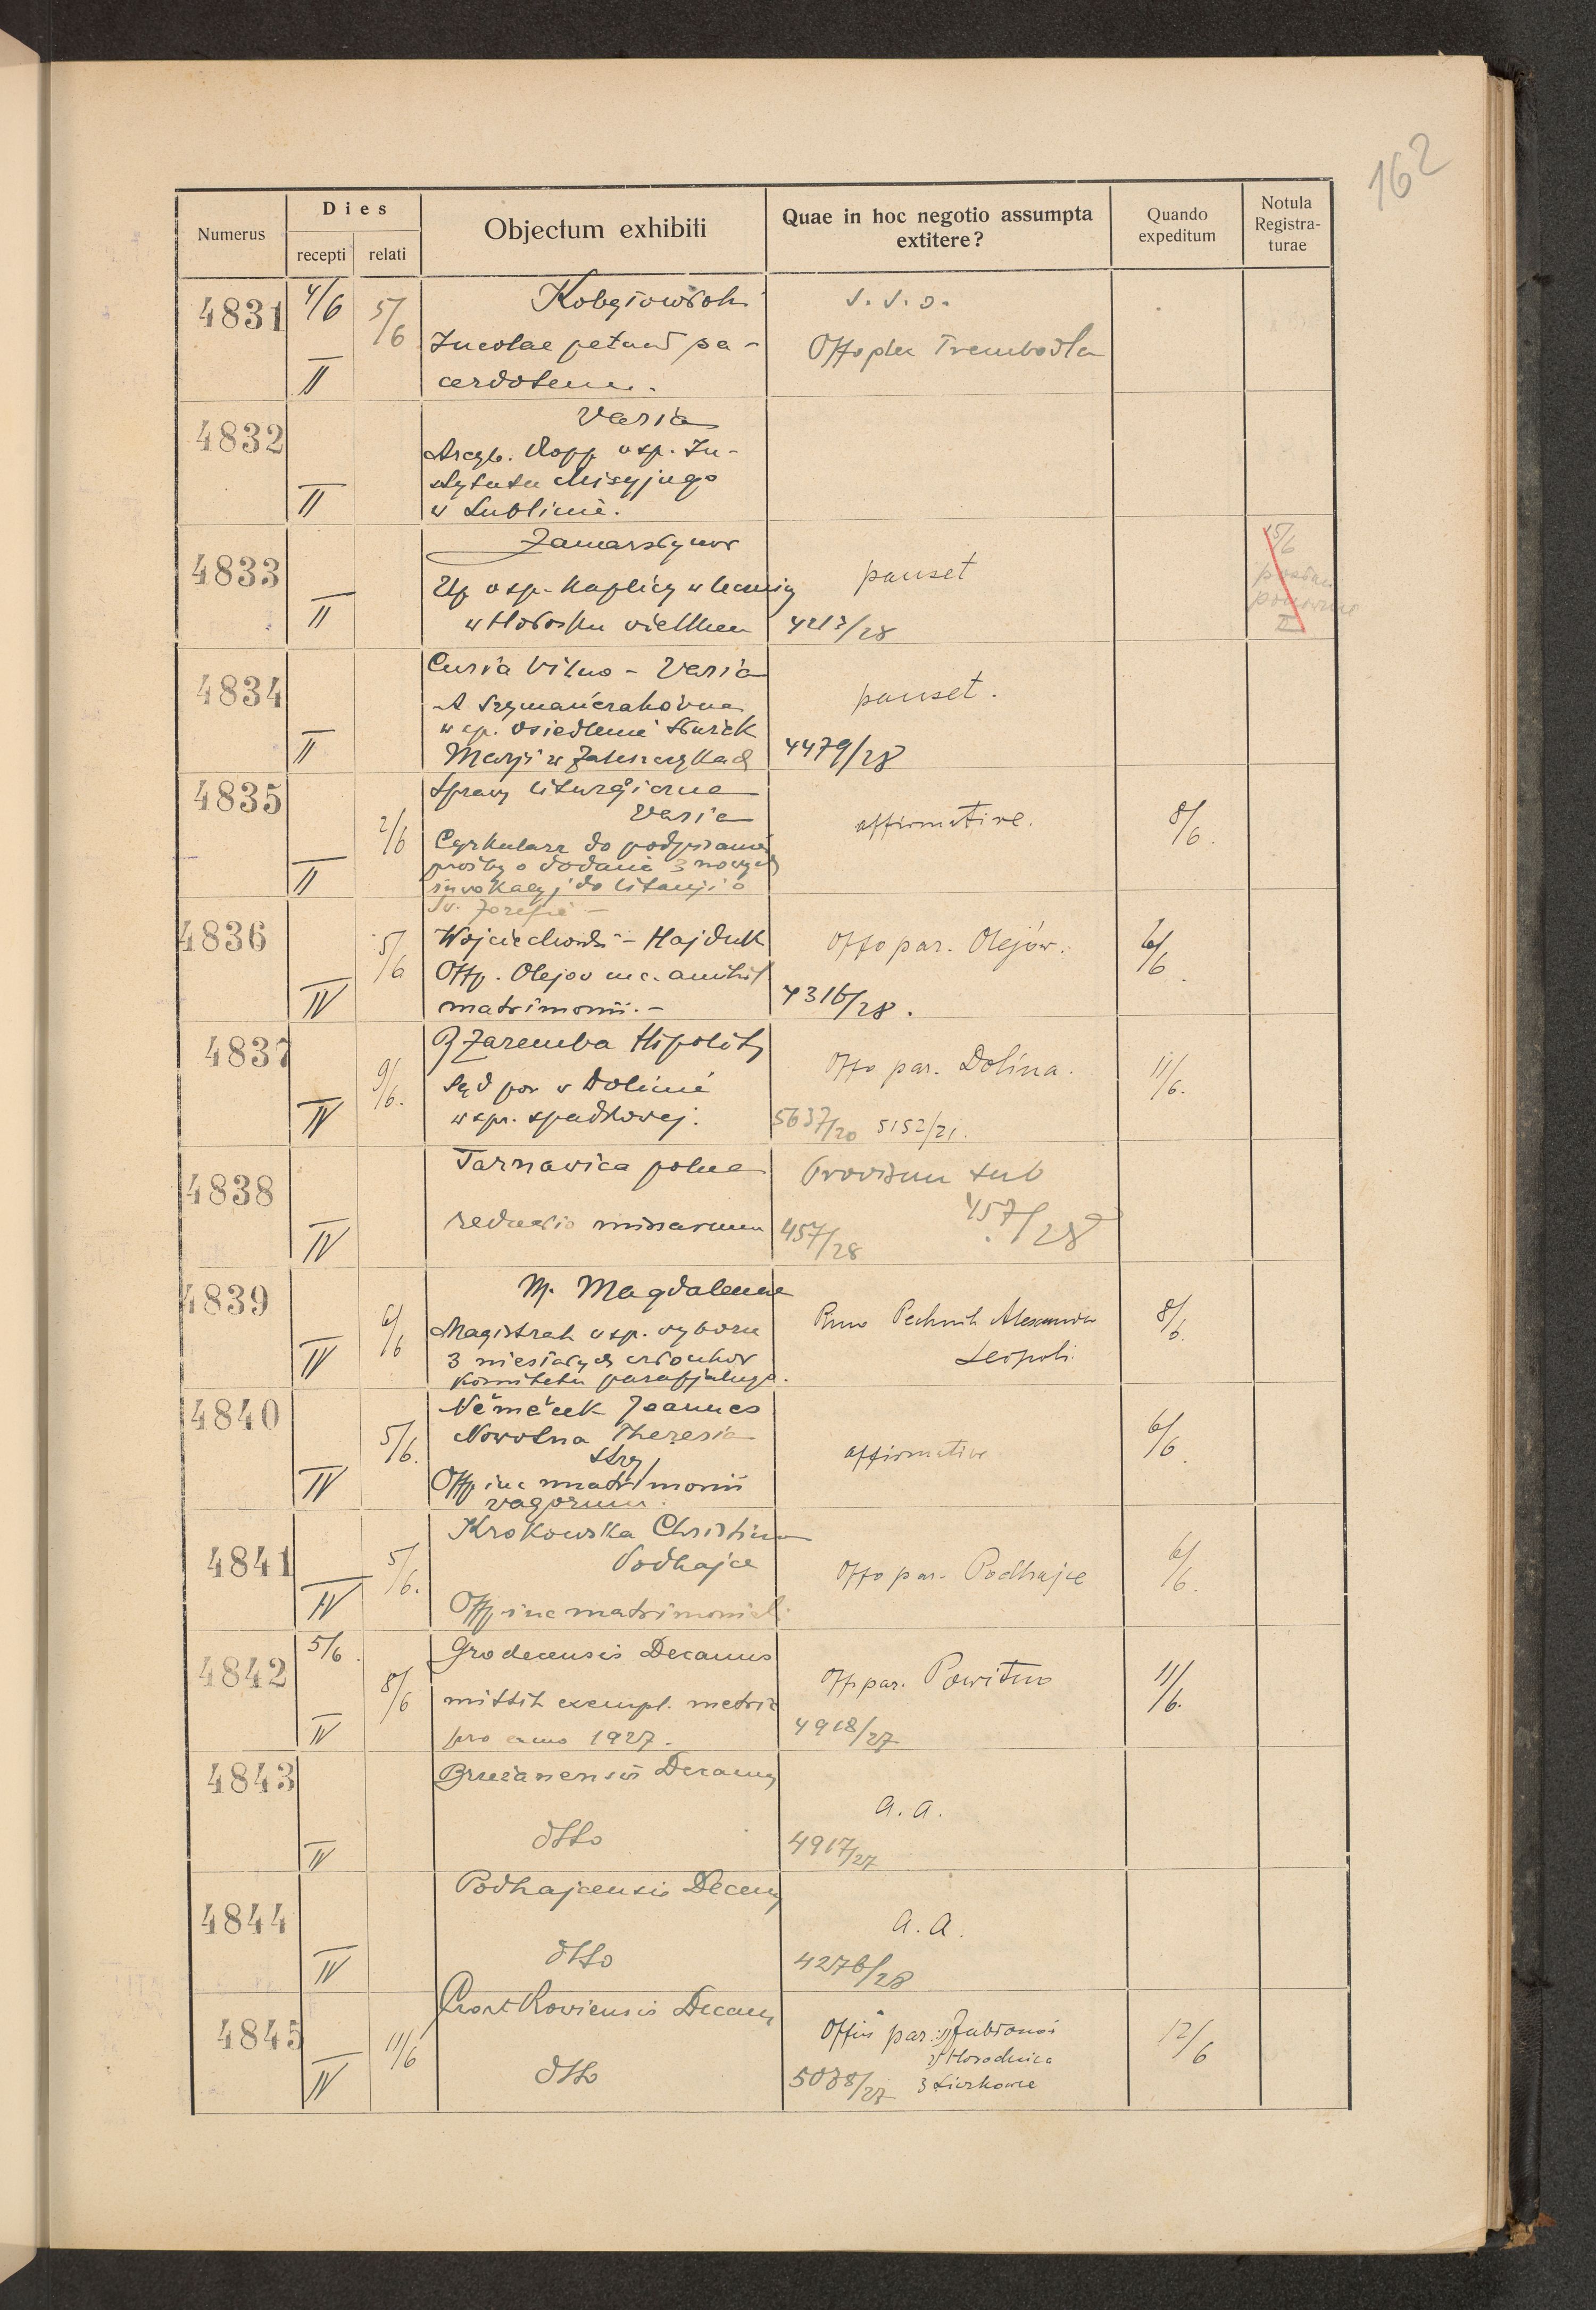 162
Numerus
Dies
recepti
relati
Objectum exhibiti
Quae in hoc negotio assumpta
extitere?
Quando
expeditum
Notula
Registra-
turae
4831
4/6
II
5/6
Incolae petunt sa-
cerdotem.
Offo plu Trembowla
4832
II
Varia
Arcyb. Ropp w sp. In-
stytutu Misyjnego
w Lublinie.
4833
II
Zamarstynow
w sp. Kaplicy w
w Hołosku wielkiem
pauset
4213/28
15/6
II
4834
II
Curia Vilno - Varia
A Szymańczakówna
w sp. osiedlenia
Marji w Zaleszczykach
pauset.
4479/28
4835
II
2/6
Sprawy liturgiczne
Varia
Cyrkularz do podpisania
prośby o dodanie 3 nowych
inwokacyj do litanji o
Św. Józefie -
affirmative.
8/6.
4836
IV
5/6
Wojciechowski - Hajduk
Offp. Olejow
matrimonii. -
Offo par. Olejów.
4316/28.
6/6.
4837
IV
9/6.
Zaremba Hipolit
Sąd pow w Dolinie
w spr. spadkowej.
Offo par. Dolina.
5637/20 5152/21.
11/6.
4838
IV
Tarnawica polna
reductio missarum
Provisum sub
457/28
457/28
4839
IV
6/6
M. Magdalenae
Magistrat w sp. wyboru
3 miejskich członków
Komitetu parafjalnego.
Rmo Pechnik Alexander
Leopoli.
8/6.
4840
IV
5/6.
Němeček Joannes
Nowotna Theresia
Stryj
Offp inc matrimonii
vagorum.
affirmative
6/6.
4841
IV
5/6.
Krokowska Christina
Podhajce
Offp inc matrimonial.
Offo par. Podhajce
6/6.
4842
5/6.
IV
8/6
Grodecensis Decanus
mittit exempl. metric
pro anno 1927.
Off par. Powitno
4918/27
11/6.
4843
IV
Brzeżanensis Decanus
dtto
a.a.
4917/27
4844
IV
Podhajcensis Decanus
dtto
a.a.
4276/28
4845
IV
11/6
Czortkoviensis Decanus
dtto
Offiis par: 1) Jabłonów
2) Horodnica
5038/27 3 Liczkowce
12/6